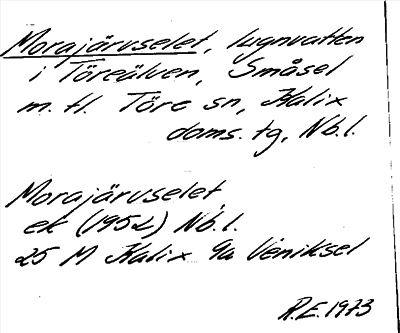 Morajärvselet, lugnvatten
i Töreälven, Småsel
m. fl. Töre sn, Kalix
doms. tg, Nb.l.
Morajärvselet,
ek (1952) Nb.l.
25 M Kalix 9a Väniksel
R.E. 1973